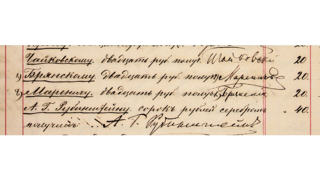 Чайковскому двадцать руб. полу. Чайковскій 20.
1) Брянскому двадцать руб. получ. Маренич 20.
2) Мареничу, двадцать руб. получ. Брянскій 20.
А. Г. Рубинштейну сорокъ рублей серебромъ 40.
получилъ А. Г. Рубинштейнъ